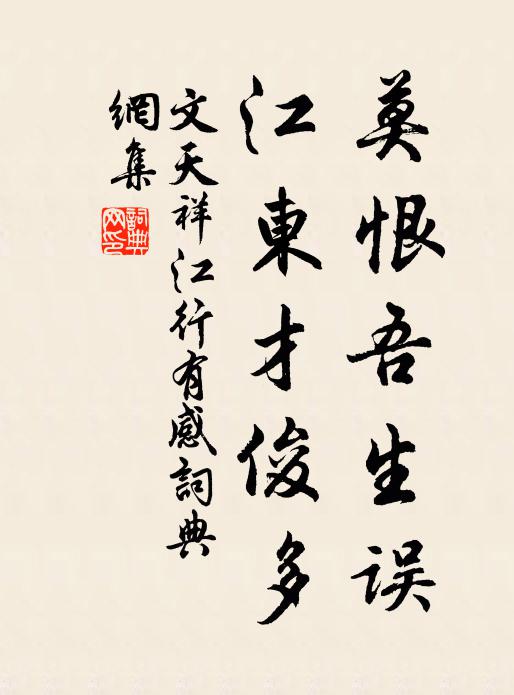 莫恨吾生误
江東才俊多
文天祥江行有感詞典
網集
詞典网印